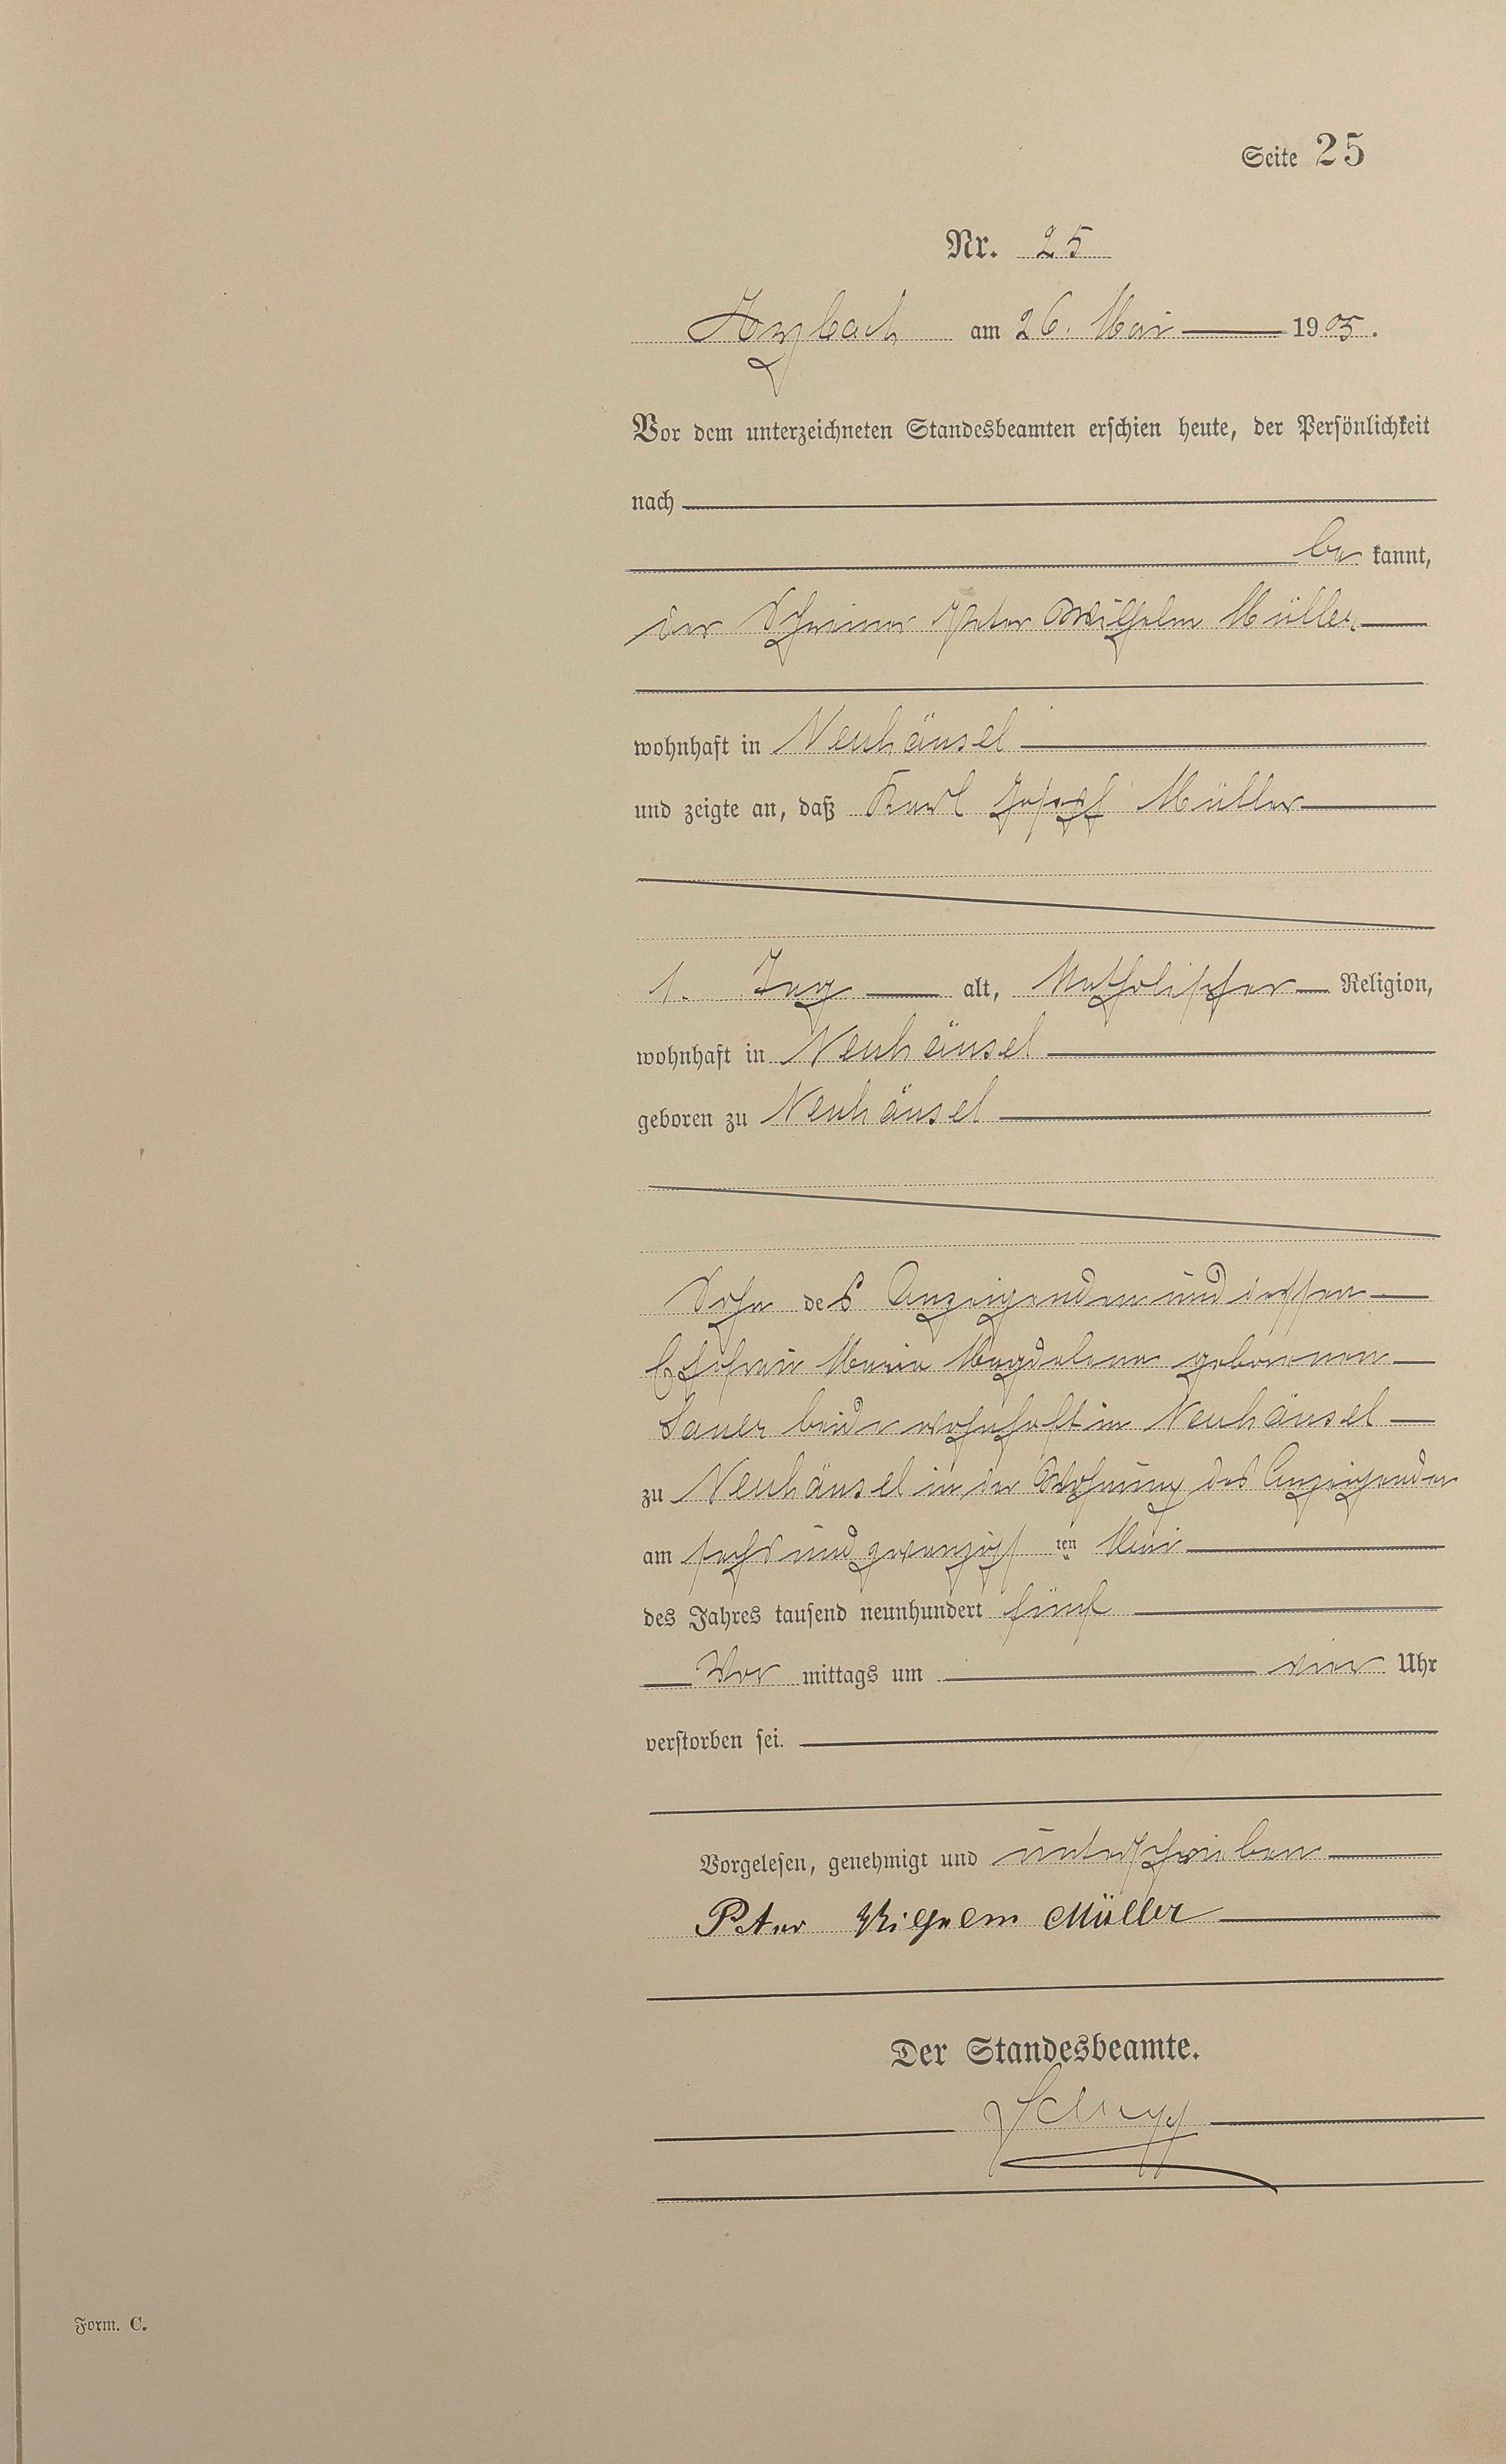 Seite 25
Nr. 25
Arzbach am 26. Mai 1905.
Vor dem unterzeichneten Standesbeamten erschien heute, der Persönlichkeit
nach
be kannt,
der Schreiner Peter Wilhelm Müller
wohnhaft in Neuhäusel
und zeigte an, daß Karl Joseph Müller
1. Tag alt, katholischer Religion,
wohnhaft in Neuhäusel
geboren zu Neuhäusel
Sohn des Anzeigenden und dessen
Ehefrau Maria Magdalena geborenen
Sauer beide wohnhaft in Neuhäusel
zu Neuhäusel in der Wohnung des Anzeigenden
am sechs und zwanzigsten Mai
des Jahres tausend neunhundert fünf
Vor mittags um vier Uhr
verstorben sei.
Vorgelesen, genehmigt und unterschrieben
Peter Wilhelm Müller
Der Standesbeamte.
Form. C.